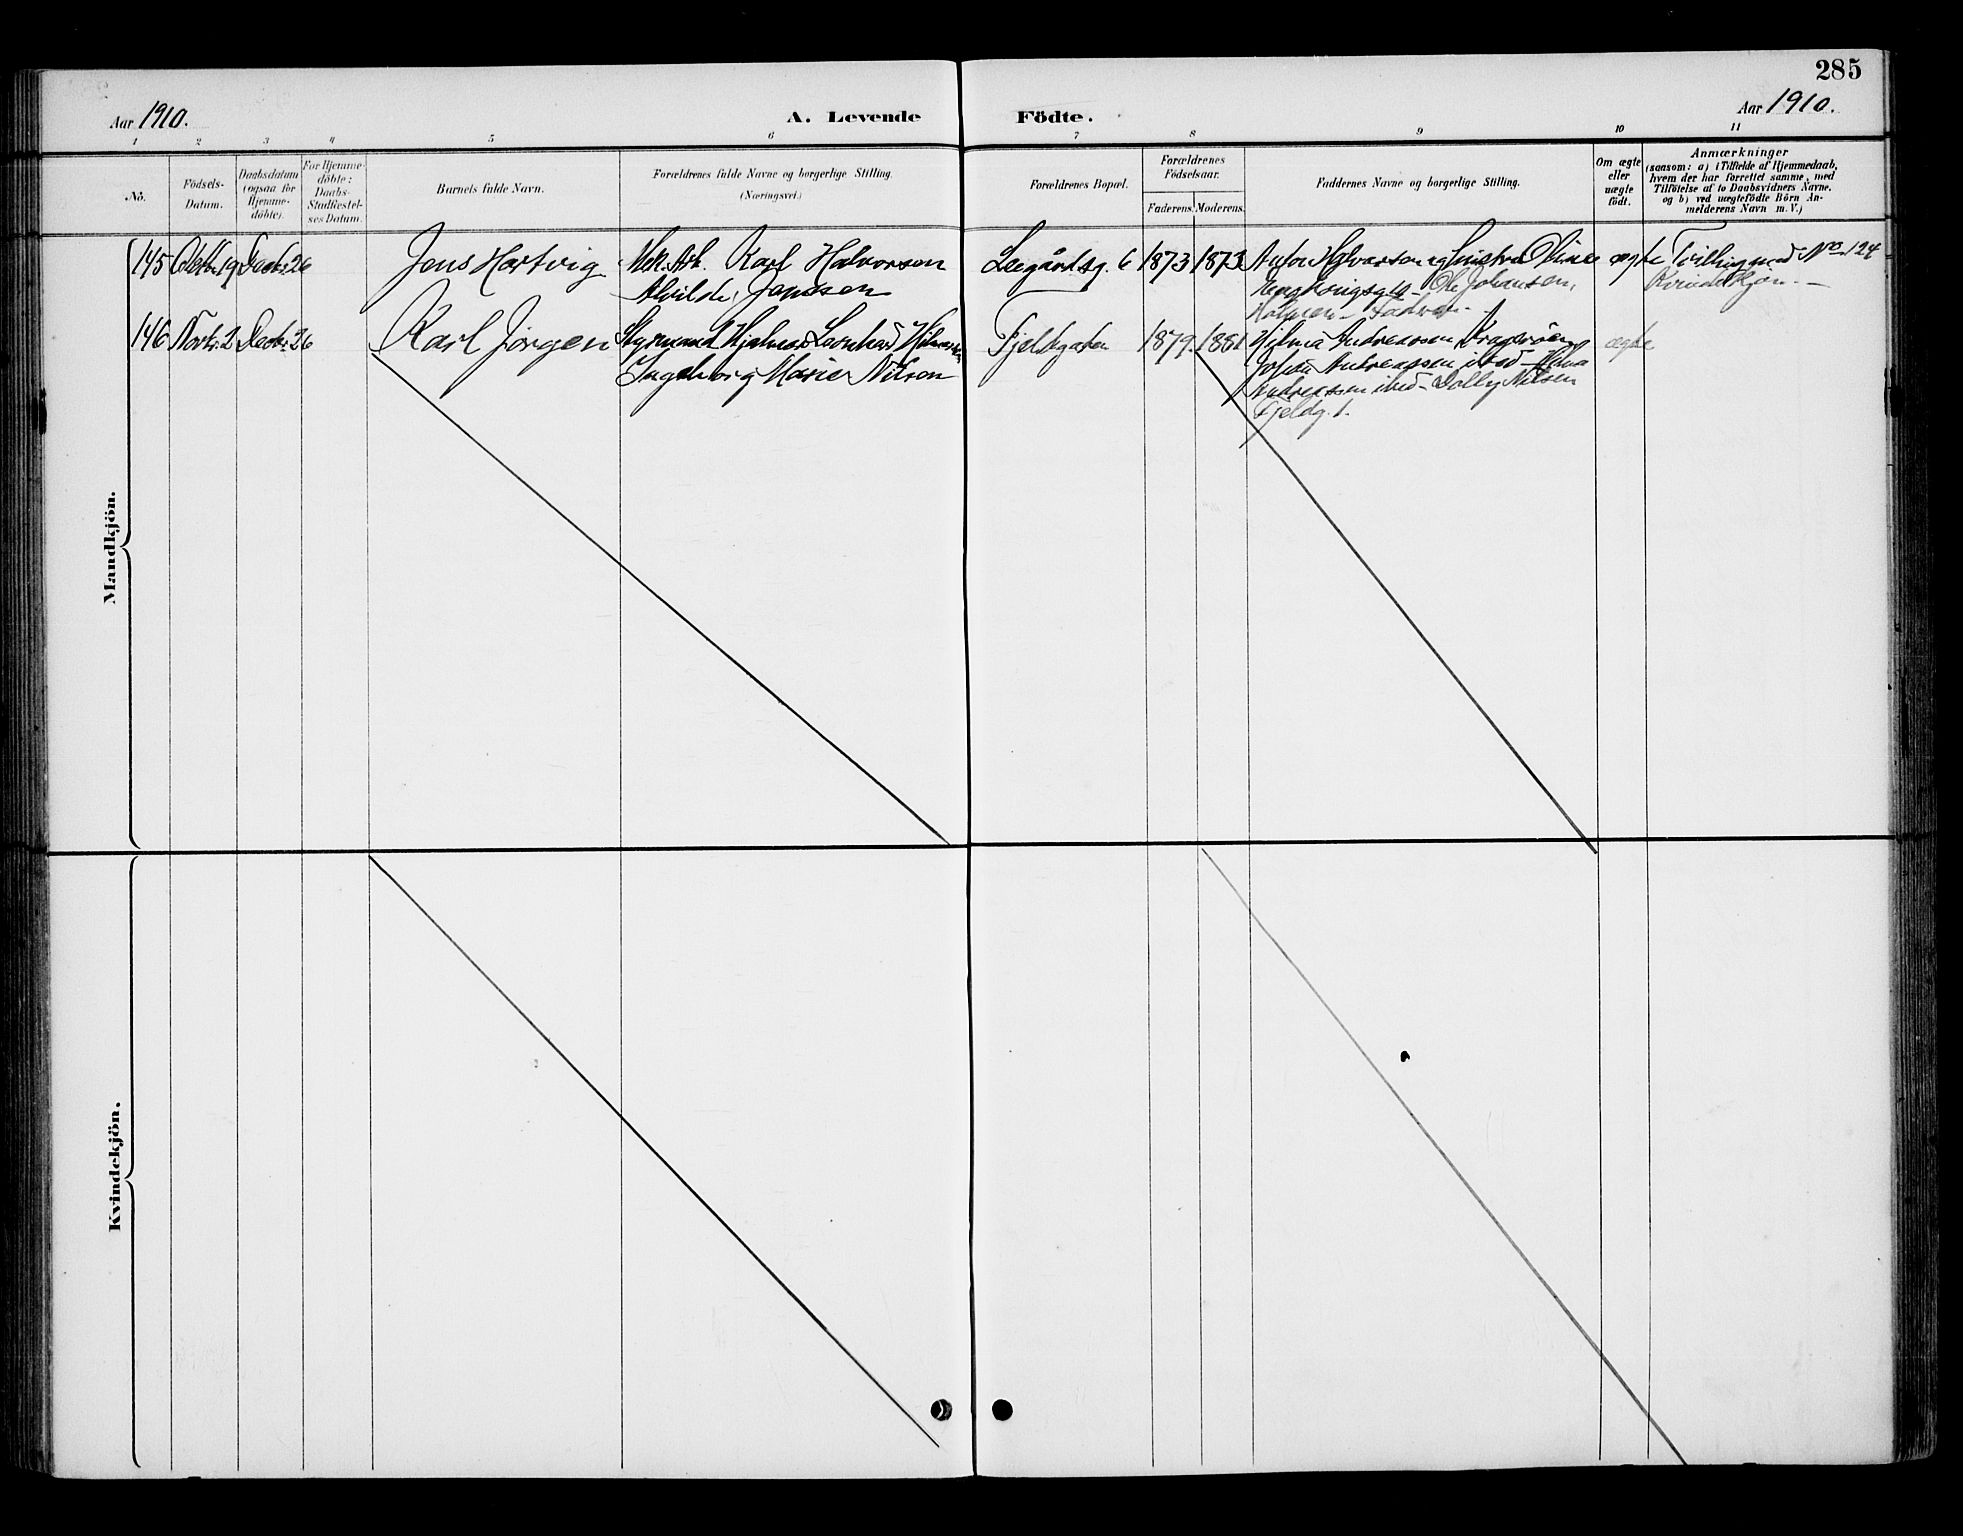 285
Aar 1910.
A. Levende Födte.
Aar 1910.
1 2 3 4 5 6 7 8 9 10 11
No.
Födsels-
Datum.
Daabsdatum
(ogsaa for
Hjemme-
döbte).
For Hjemme-
döbte:
Daabs-
Stadfæstel-
ses Datum.
Barnets fulde Navn.
Forældrenes fulde Navne og borgerlige Stilling.
(Næringsvei.)
Forældrenes Bopæl.
Forældrenes
Födselsaar.
Faderens. Moderens.
Faddernes Navne og borgerlige Stilling.
Om ægte
eller
uægte
födt.
Anmærkninger
(saasom: a) i Tilfælde af Hjemmedaab,
hvem der har forrettet samme, med
Tilföielse af to Daabsvidners Navne.
og b) ved uægtefödte Börn An-
melderens Navn m. V.)
Mandkjön.
145 Oktbr 19 Decbr. 26 Jens Hartvig Mek. Arb. Karl Halvorsen
Alvilde Jensen
Leegårdsg. 6 1873 1873 Anton Halvorsen og Hustru
Ole Johansen,
ægte Tvilling med No. 124
Kvindekjøn. —
146 Novbr. 2 Decbr. 26 Karl Jørgen Styrmand Hjalmar
Ingeborg Marie Nilsen
Fjeldgaten 1879. 1881 Hilma Andreassen Kragerøen
Johan Andreassen ibid - Helma
Andreassen ibid - Dolly Nilsen
Fjeldg. 1.
ægte
Kvindekjön.